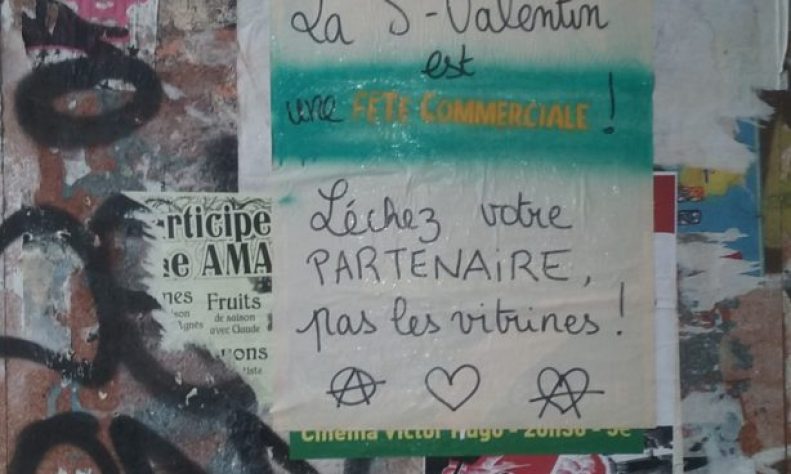 La S-Valentin
est
une FÊTE COMMERCIALE !
Léchez votre
PARTENAIRE,
pas les vitrines !
rticipe
AMA
Fruits
de saison
avec Claude
Cinéma Victor Hugo - 20h30 - 5€